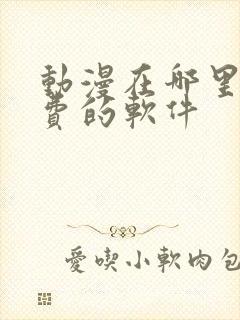 動漫在哪里
費的軟件
愛喫小軟肉包